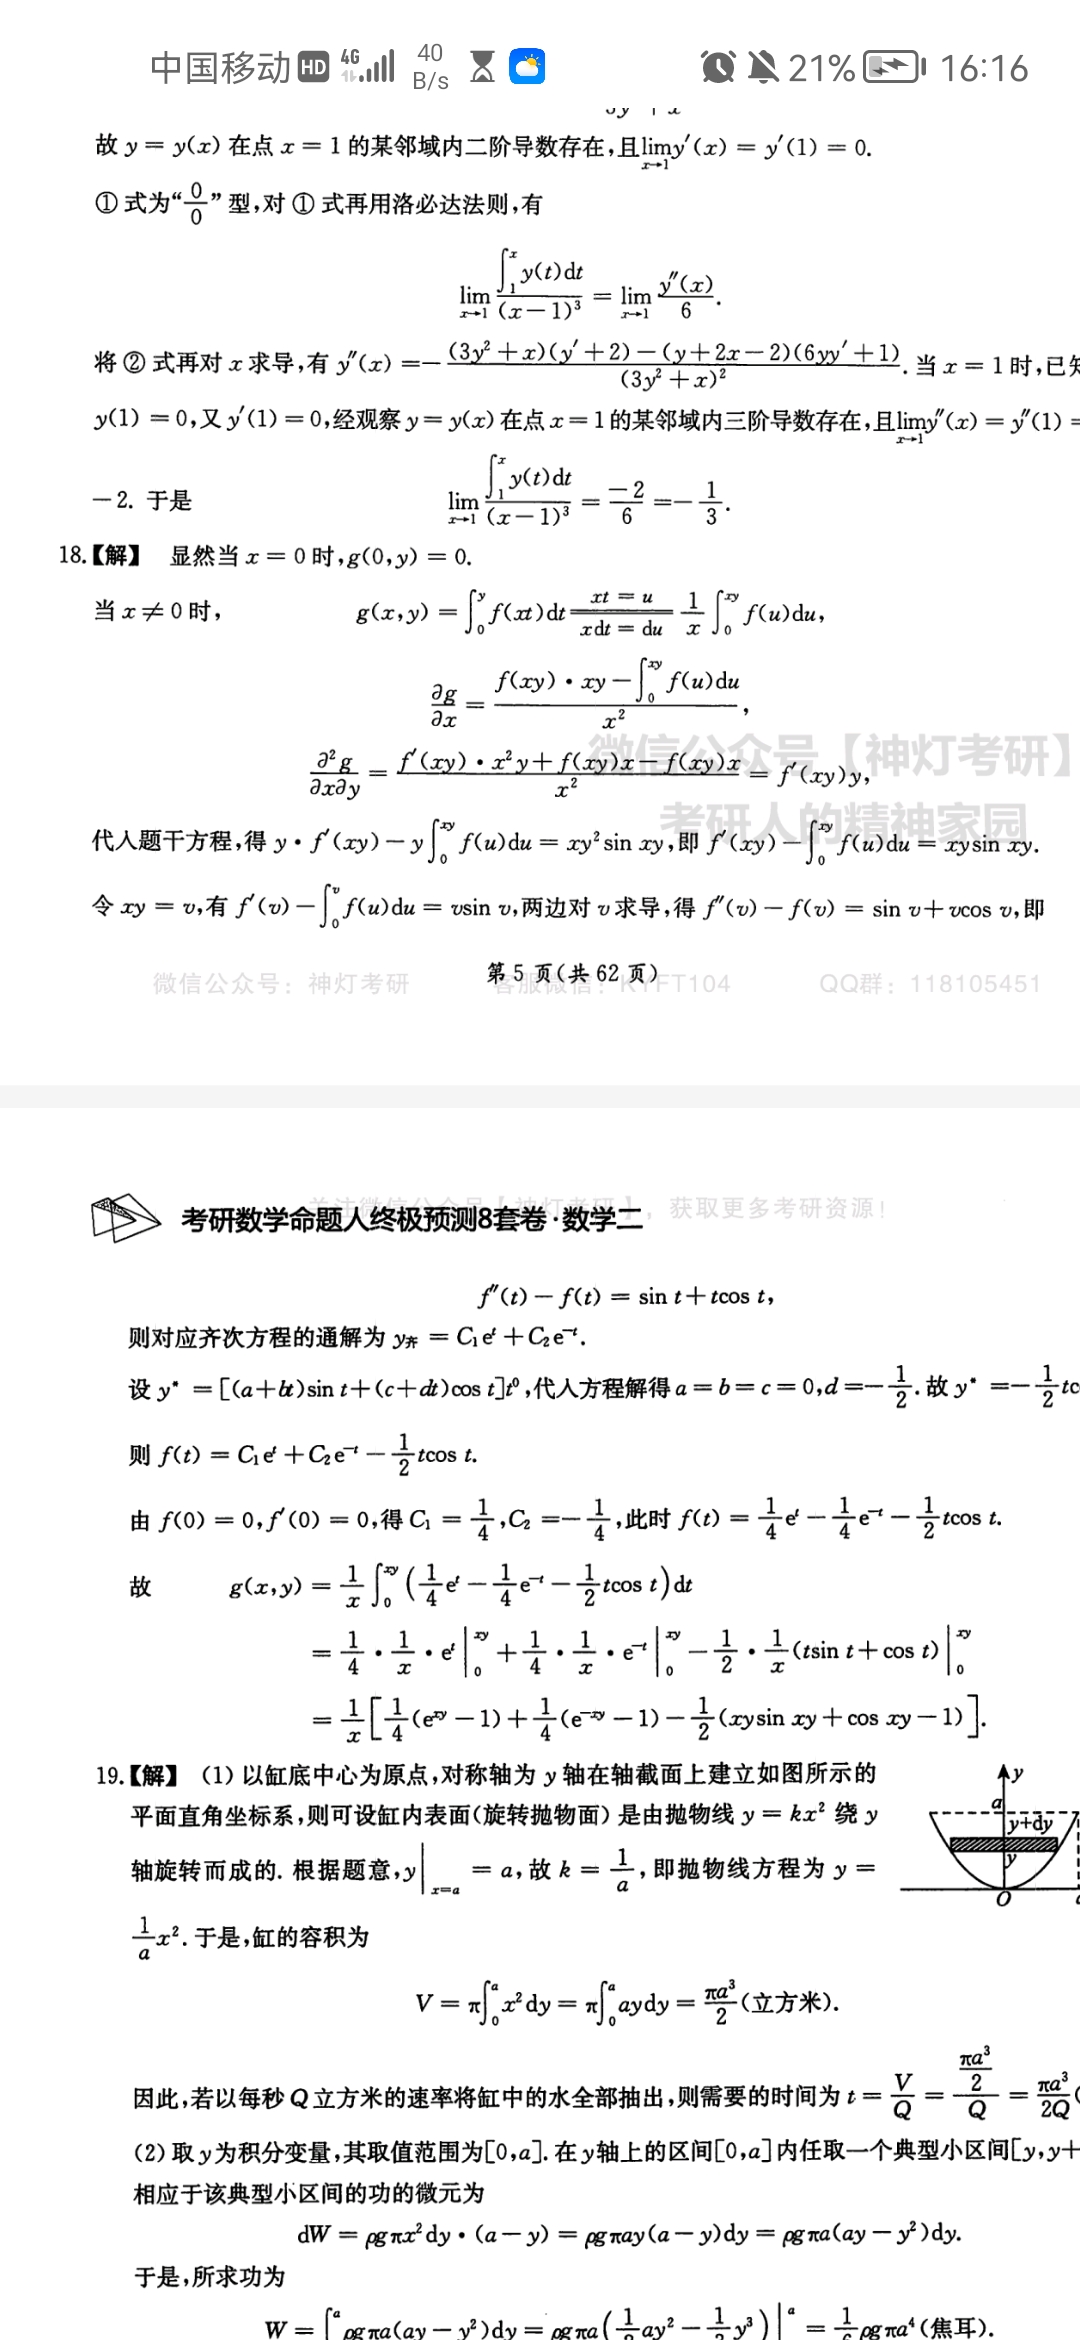 中国移动 HD 4G 40 B/s 21% 16:16
故 y = y(x) 在点 x = 1 的某邻域内二阶导数存在,且 lim_{x→1} y′(x) = y′(1) = 0.
① 式为“0/0”型,对 ① 式再用洛必达法则,有
lim_{x→1} ∫_1^x y(t)dt / (x−1)³ = lim_{x→1} y″(x)/6.
将 ② 式再对 x 求导,有 y″(x) = − [(3y²+x)(y′+2)−(y+2x−2)(6yy′+1)] / (3y²+x)². 当 x = 1 时,已知
y(1) = 0,又 y′(1) = 0,经观察 y = y(x) 在点 x = 1 的某邻域内三阶导数存在,且 lim_{x→1} y″(x) = y″(1) =
−2. 于是 lim_{x→1} ∫_1^x y(t)dt / (x−1)³ = −2/6 = −1/3.
18.【解】 显然当 x = 0 时,g(0,y) = 0.
当 x ≠ 0 时, g(x,y) = ∫_0^y f(xt)dt (xt = u, xdt = du) = 1/x ∫_0^{xy} f(u)du,
∂g/∂x = [f(xy)·xy − ∫_0^{xy} f(u)du] / x²,
微信公众号【神灯考研】
∂²g/∂x∂y = [f′(xy)·x²y + f(xy)x − f(xy)x] / x² = f′(xy)y,
考研人的精神家园
代入题干方程,得 y·f′(xy) − y∫_0^{xy} f(u)du = xy² sin xy,即 f′(xy) − ∫_0^{xy} f(u)du = xysin xy.
令 xy = v,有 f′(v) − ∫_0^v f(u)du = vsin v,两边对 v 求导,得 f″(v) − f(v) = sin v + vcos v,即
第 5 页(共 62 页)
微信公众号:神灯考研 客服微信:KYFT104 QQ群:118105451
关注微信公众号【神灯考研】,获取更多考研资源!
考研数学命题人终极预测8套卷·数学二
f″(t) − f(t) = sin t + tcos t,
则对应齐次方程的通解为 y齐 = C₁eᵗ + C₂e⁻ᵗ.
设 y* = [(a+bt)sin t + (c+dt)cos t]t⁰,代入方程解得 a = b = c = 0,d = −1/2. 故 y* = −1/2 tc
则 f(t) = C₁eᵗ + C₂e⁻ᵗ − 1/2 tcos t.
由 f(0) = 0,f′(0) = 0,得 C₁ = 1/4,C₂ = −1/4,此时 f(t) = 1/4 eᵗ − 1/4 e⁻ᵗ − 1/2 tcos t.
故 g(x,y) = 1/x ∫_0^{xy} (1/4 eᵗ − 1/4 e⁻ᵗ − 1/2 tcos t)dt
= 1/4 · 1/x · eᵗ |_0^{xy} + 1/4 · 1/x · e⁻ᵗ |_0^{xy} − 1/2 · 1/x (tsin t + cos t) |_0^{xy}
= 1/x [1/4 (e^{xy} − 1) + 1/4 (e^{−xy} − 1) − 1/2 (xysin xy + cos xy − 1)].
19.【解】 (1) 以缸底中心为原点,对称轴为 y 轴在轴截面上建立如图所示的
平面直角坐标系,则可设缸内表面(旋转抛物面)是由抛物线 y = kx² 绕 y
轴旋转而成的. 根据题意,y|_{x=a} = a,故 k = 1/a,即抛物线方程为 y =
1/a x². 于是,缸的容积为
y
a
y+dy
y
O
V = π∫_0^a x²dy = π∫_0^a aydy = πa³/2 (立方米).
因此,若以每秒 Q 立方米的速率将缸中的水全部抽出,则需要的时间为 t = V/Q = (πa³/2)/Q = πa³/2Q (
(2) 取 y 为积分变量,其取值范围为[0,a]. 在 y 轴上的区间[0,a]内任取一个典型小区间[y,y+
相应于该典型小区间的功的微元为
dW = ρgπx²dy·(a−y) = ρgπay(a−y)dy = ρgπa(ay−y²)dy.
于是,所求功为
W = ∫^a ρgπa(ay−y²)dy = ρgπa(1/2 ay² − 1/3 y³)|^a = 1/6 ρgπa⁴(焦耳).